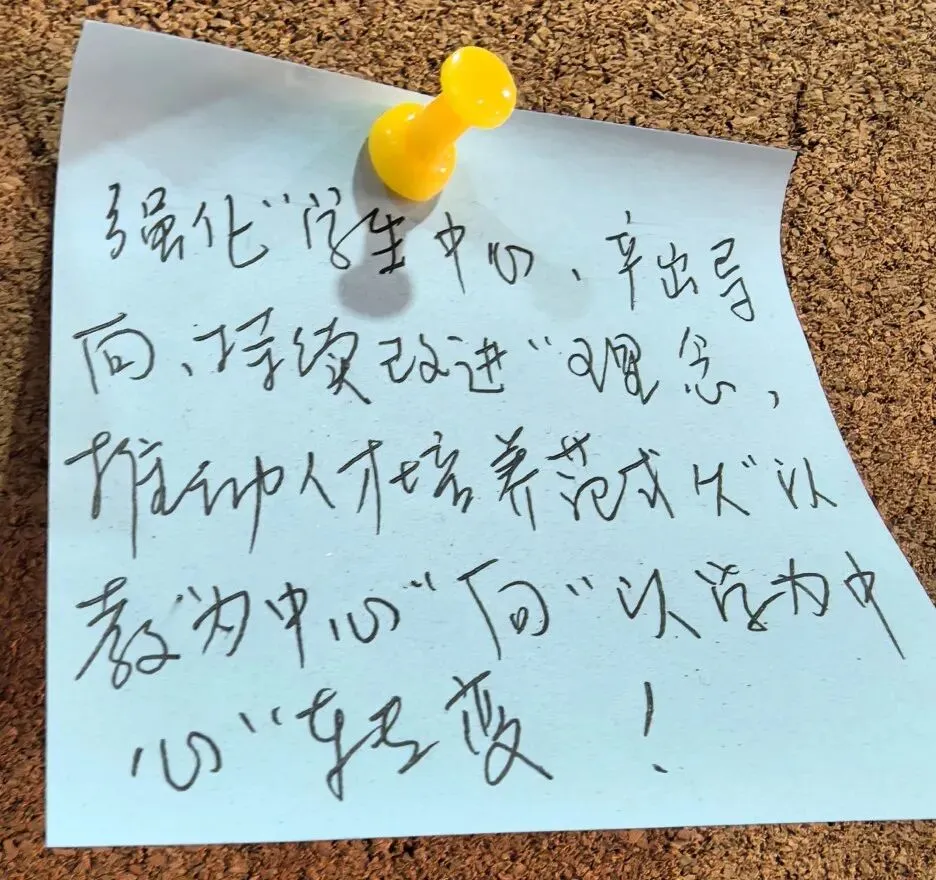 强化“学生中心、产出导
向、持续改进”理念，
推动人才培养范式从“以
教为中心”向“以学为中
心”转变！